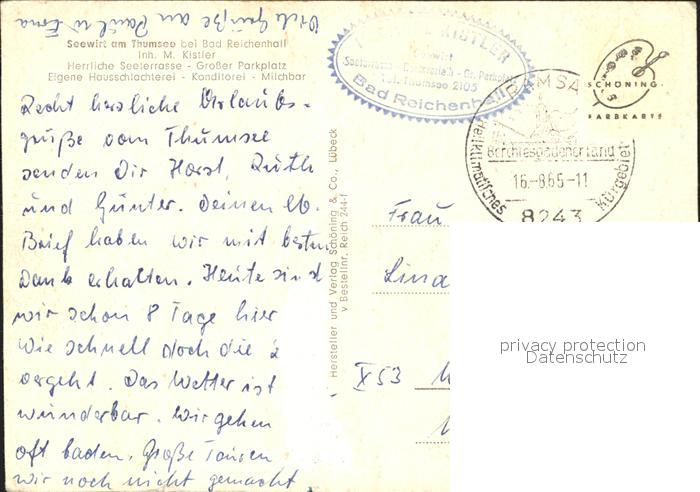 Viele Grüße an Paul u. Erna
Seewirt am Thumsee bei Bad Reichenhall
Inh. M. Kistler
Herrliche Seeterrasse - Großer Parkplatz
Eigene Hausschlachterei - Konditorei - Milchbar
Recht herzliche Urlaubs-
grüße vom Thumsee
senden Dir Horst, Ruth
und Günter. Deinen lb.
Brief haben wir mit besten
Dank erhalten. Heute sind
wir schon 8 Tage hier
Wie schnell doch die
vergeht. Das Wetter ist
wunderbar. Wir gehen
oft baden. Große Touren
wir noch nicht gemacht.
Hersteller und Verlag Schöning & Co., Lübeck
v Bestellnr. Reich 244-f
KISTLER
Seewirt
Gr. Parkplatz
Tel. Thumsee 2105
Bad Reichenhall
RAMSA
Berchtesgadener Land
16.-8.65-11
Heilklimatisches
Kurgebiet
8243
SCHÖNING
FARBKARTE
Frau
Lina
X53
privacy protection
Datenschutz